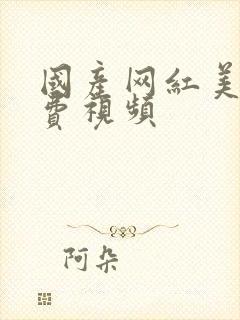 國產网紅美
費視頻
阿朵